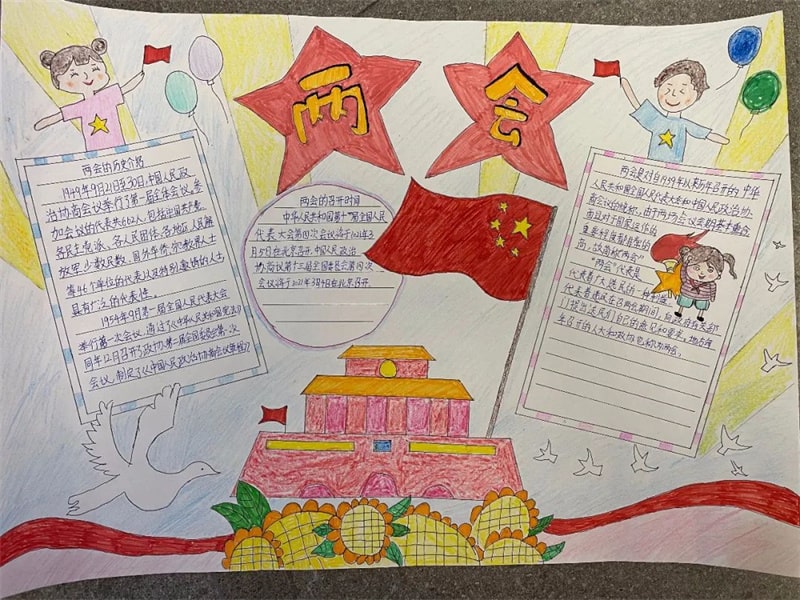 两会
两会的历史介绍
1949年9月21日至30日,中国人民政
治协商会议举行了第一届全体会议,参
加会议的代表共662人,包括中国共产党、
各民主党派、各人民团体、各地区、人民解
放军、少数民族、国外华侨、宗教界人士
等46个单位的代表以及特别邀请的人士,
具有广泛的代表性。
1954年9月第一届全国人民代表大会
举行第一次会议,通过了《中华人民共和国宪法》
同年12月召开了政协第二届全国委员会第一次
会议,制定了《中国人民政治协商会议章程》
两会的召开时间
中华人民共和国第十三届全国人民
代表大会第四次会议将于2021年3
月5日在北京召开。中国人民政治
协商议第十三届全国委员会第四次
会议将于2021年3月4日在北京召开。
两会是对自1959年以来历年召开的中华
人民共和国全国人民代表大会和中国人民政治协
商会议的统称。由于两场会议会期基本重合
而且对于国家运作的
重要程度都非常的
高,故简称“两会”
“两会”代表是
代表着广大选民的一种利益,
代表着选民在召两会期间,向政府有关部
们提出选民们自己的意见和要求。地方每
年召开的人大和政协也称为两会。